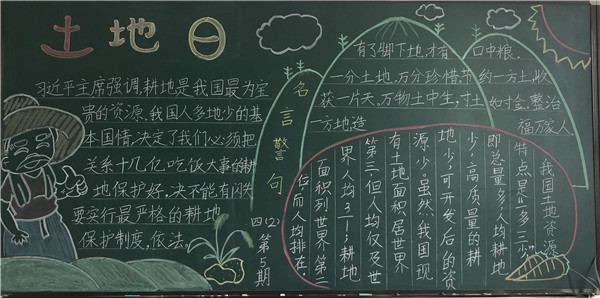 土地日
习近平主席强调,耕地是我国最为宝
贵的资源。我国人多地少的基
本国情,决定了我们必须把
关系十几亿吃饭大事的耕
地保护好,决不能有闪失
要实行最严格的耕地
保护制度,依法。
名言警句
四(2)
第5期
有了脚下地,才有口中粮,
一分土地,万分珍惜,节约一方土,收
获一片天,万物土中生,寸土如寸金,整治
一方地,造福万家人,
我国土地资源
特点是“一多三少”
即总量多,人均耕地
少,高质量的耕
地少,可开发后的资
源少。虽然,我国现
有土地面积居世界
第三,但人均仅及世
界人均3一1;耕地
面积列世界第二
位,而人均排在.